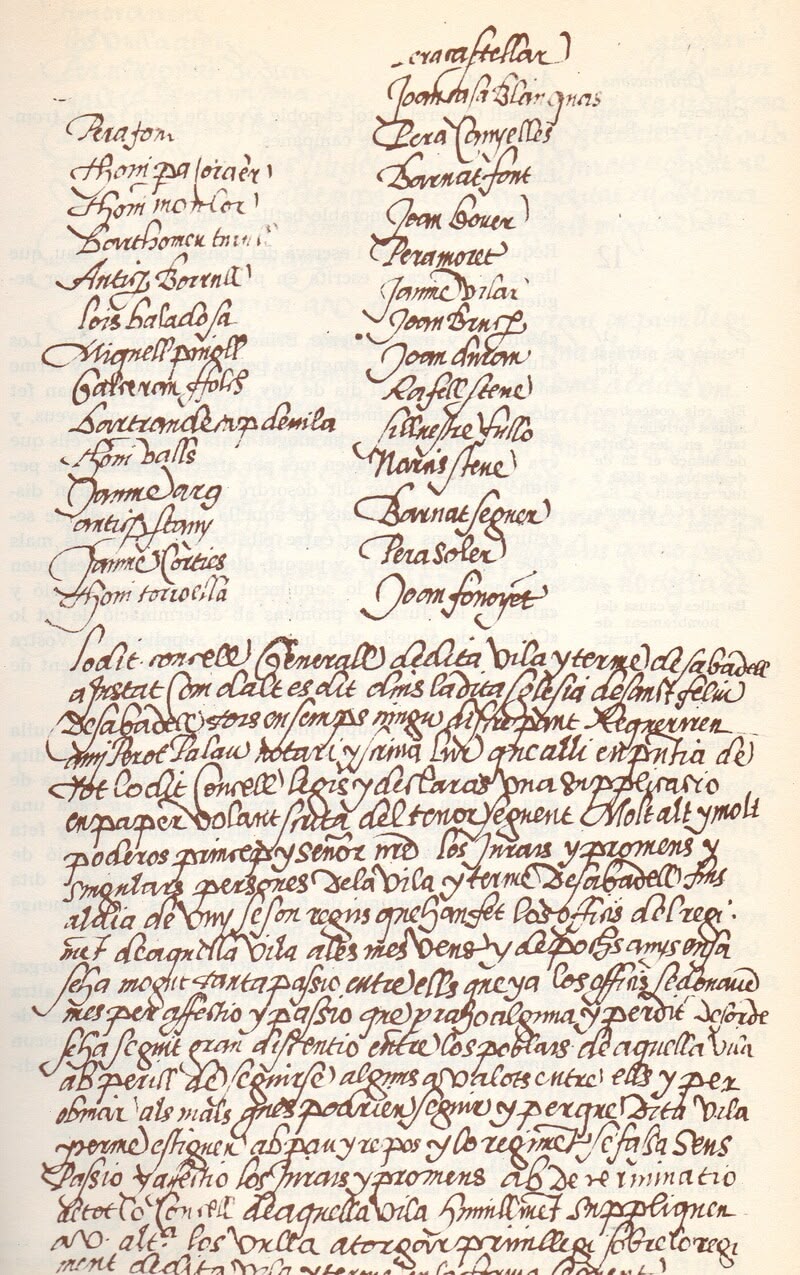 Perafont
thoni pa
thoni monlor
Barthomeu
Antich Borrell
lois baladosa
Miquell pinyoll
Galceran ffolch
bartran de cap de vila
thoni valls
Jaume
antich stany
Jaume Corties
thoni torroella
castellar
Joan casa Blanquas
Pera Canyelles
Barnat font
Joan bover
Pera moret
Jaume vilar
Joan Bruch
Joan duran
Rafell steve
sillvestre fullo
Narsis steve
Barnat seguer
Pera Soler
Joan fonoyet
lo dit concell Generall de dita vila y terme de sabadell
aiustat Com dalt es dit dins la dita sglesia de sanct feliu
De sabadell tots ensemps ningu discrepant Requeriren
a mi Perot Palau notari y scriva lur que alli en pntia de
tot lo dit Concell legis y declaras una supplicatio
en paper volant scrita del tenor seguent Molt alt y molt
poderos princep y Señor nre los Jurats y promens y
singulars persones De la vila y terme De sabadell fins
al dia de vuy se son regits que han fet los officis del regi
met de aquella vila a les mes veus y de pochs anys ensa
se ha mogut tanta passio entre ells que ya los officis se donaue
mes per affectio y passio que p raho alguna y per dit desorde
se ha seguit gran discentio entre los poblats de aquella vila
ab perill de seguirse alguns avalots entre ells y per
obviar als mals ques podrien seguir y perque Dita vila
y terme estiguen ab pau y repos y lo regimet se fasa Sens
Passio y afectio los Jurats y promens ab Determinatio
de tot lo Concell de aquella vila humillmet suppliquen
a V. alta los vulla atorgar privillegi sobre lo regi
ment de dita vila y terme en la forma seguent